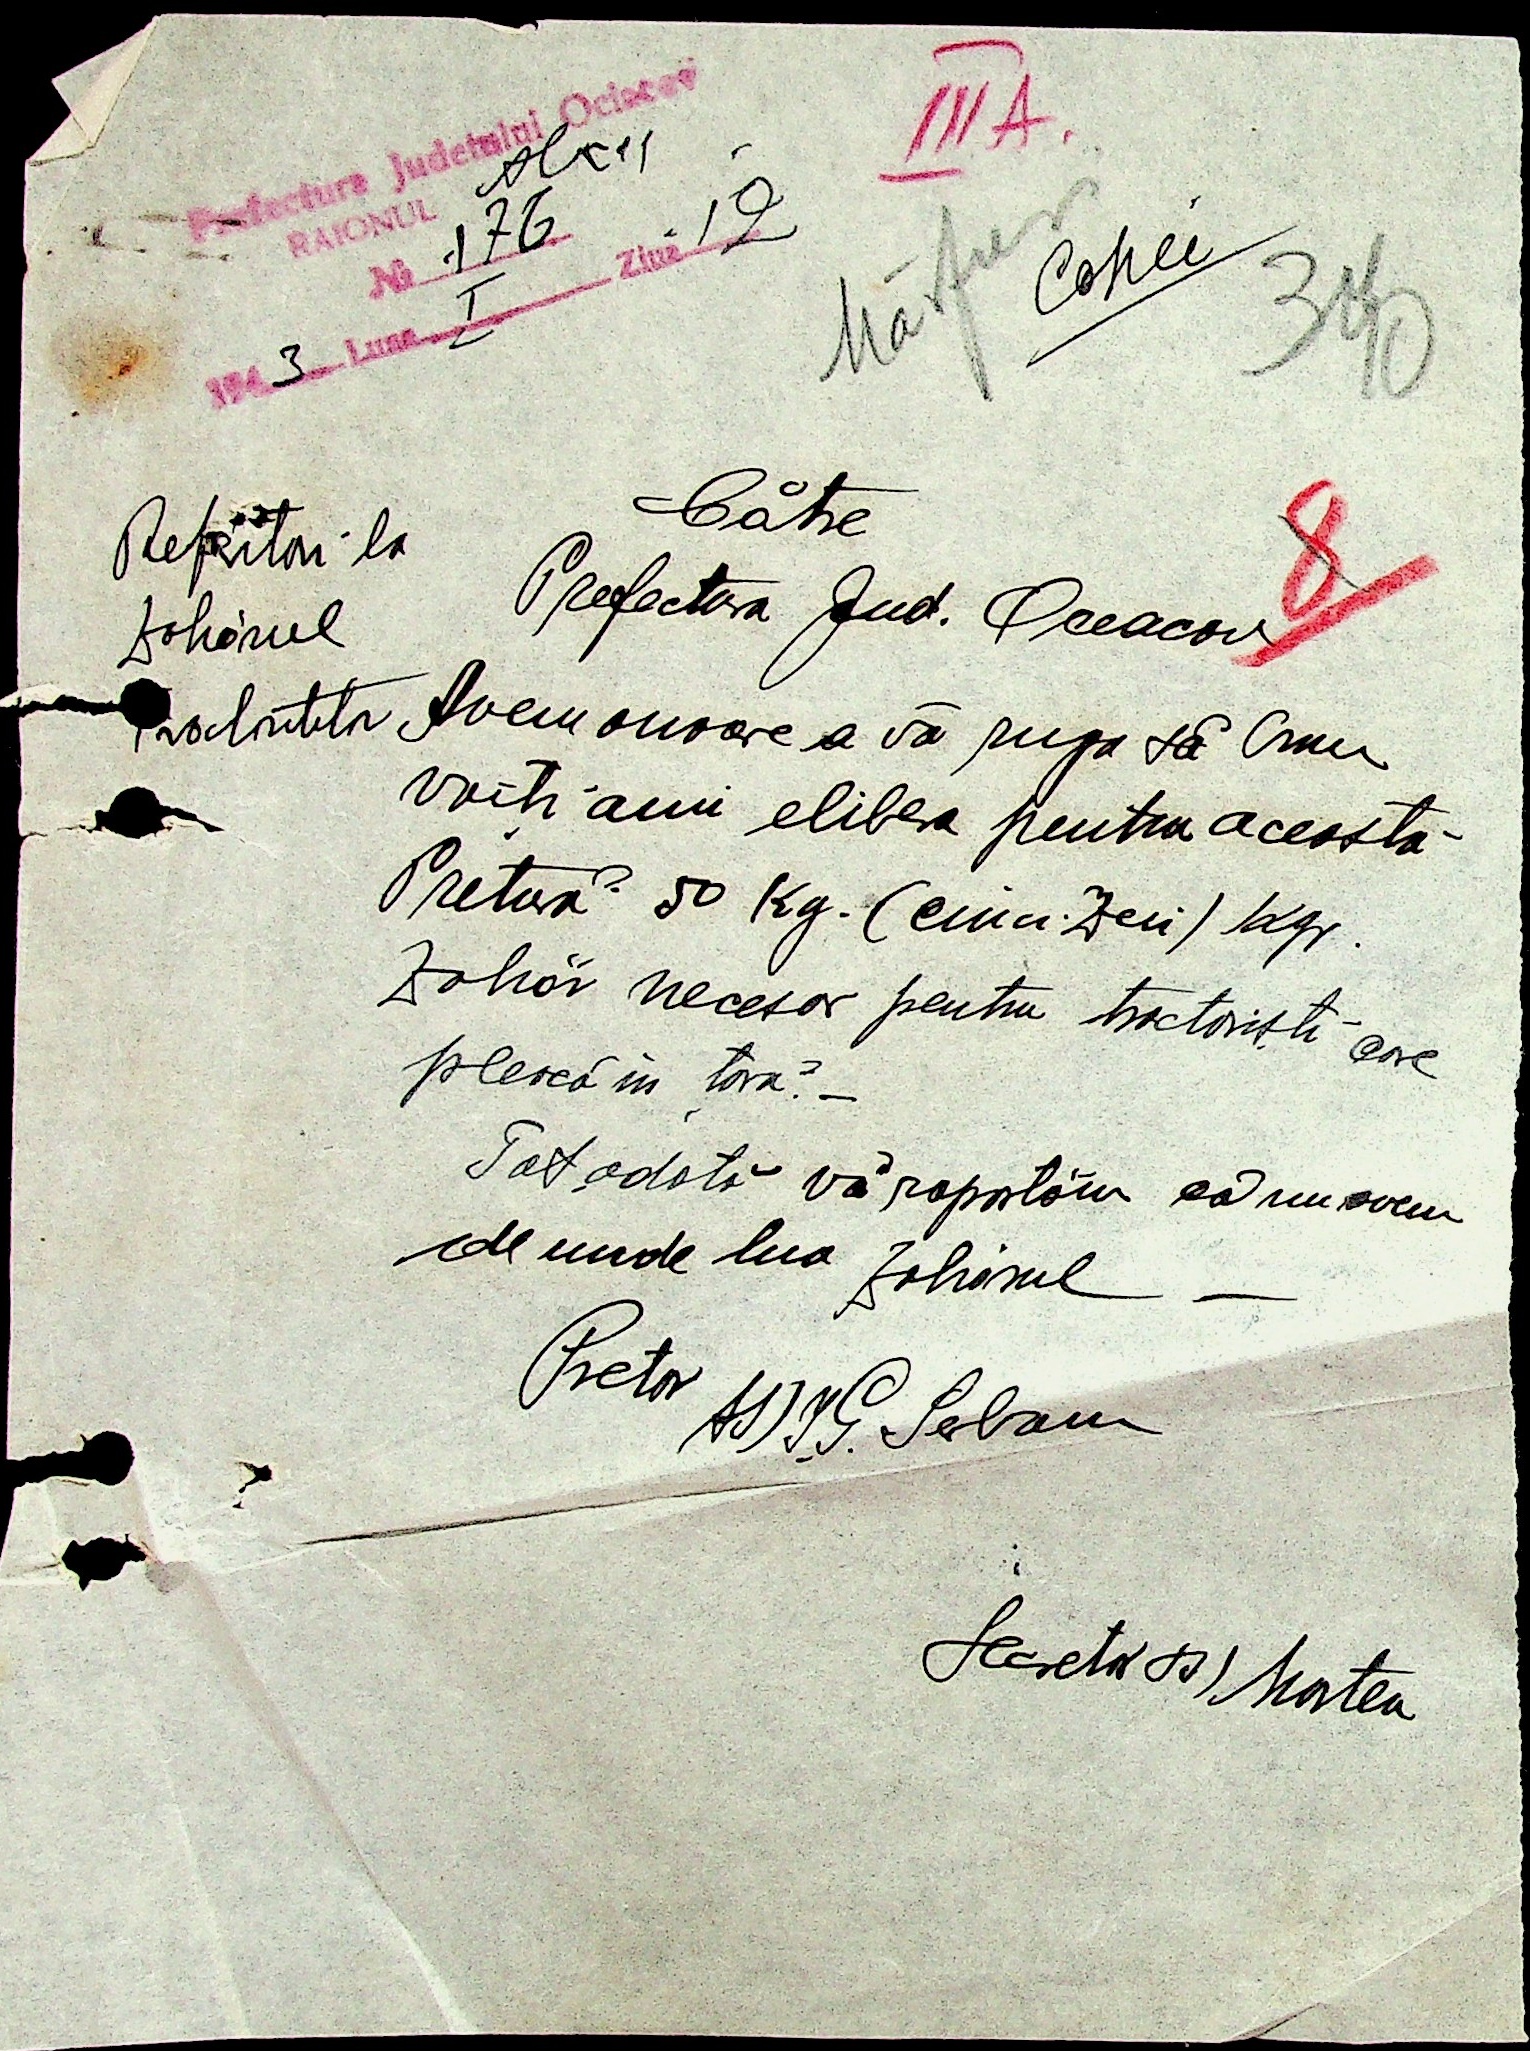 III A.
Prefectura Judetului Ociacov
RAIONUL
№ 176 Ziua 12
1943 Luna I
Copie
340
8
Către
Prefectura Jud. Oceacov
Referitor la
Zahărul
Avem onoare a vă ruga să
voiți ami elibera pentru aceasta
Pretură 50 Kg. (cinci Zeci) Kgr.
Zahăr necesar pentru tractoriști care
pleacă in țară. —
Tot odată vă raportăm că nu avem
de unde lua Zahărul —
Pretor ss) I. G. Serban
Secretar ss) Martea